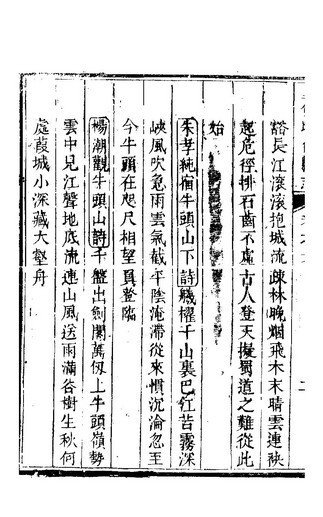 豁長江滾滾抱城流疎林晚烟飛木末晴雲連秧
起危徑排石齒不虛古人登天擬蜀道之難從此
始
朱孝純宿牛頭山下詩艤櫂千山裏巴江苦霧深
峽風吹急雨雲氣截平陰淹滯從來慣沉淪忽至
今牛頭在咫尺相望負登臨
楊潮觀牛頭山詩千盤出劍閣萬仞上牛頭嶺勢
雲中見江聲地底流連山風送雨滿谷樹生秋何
處葭城小深藏大壑舟